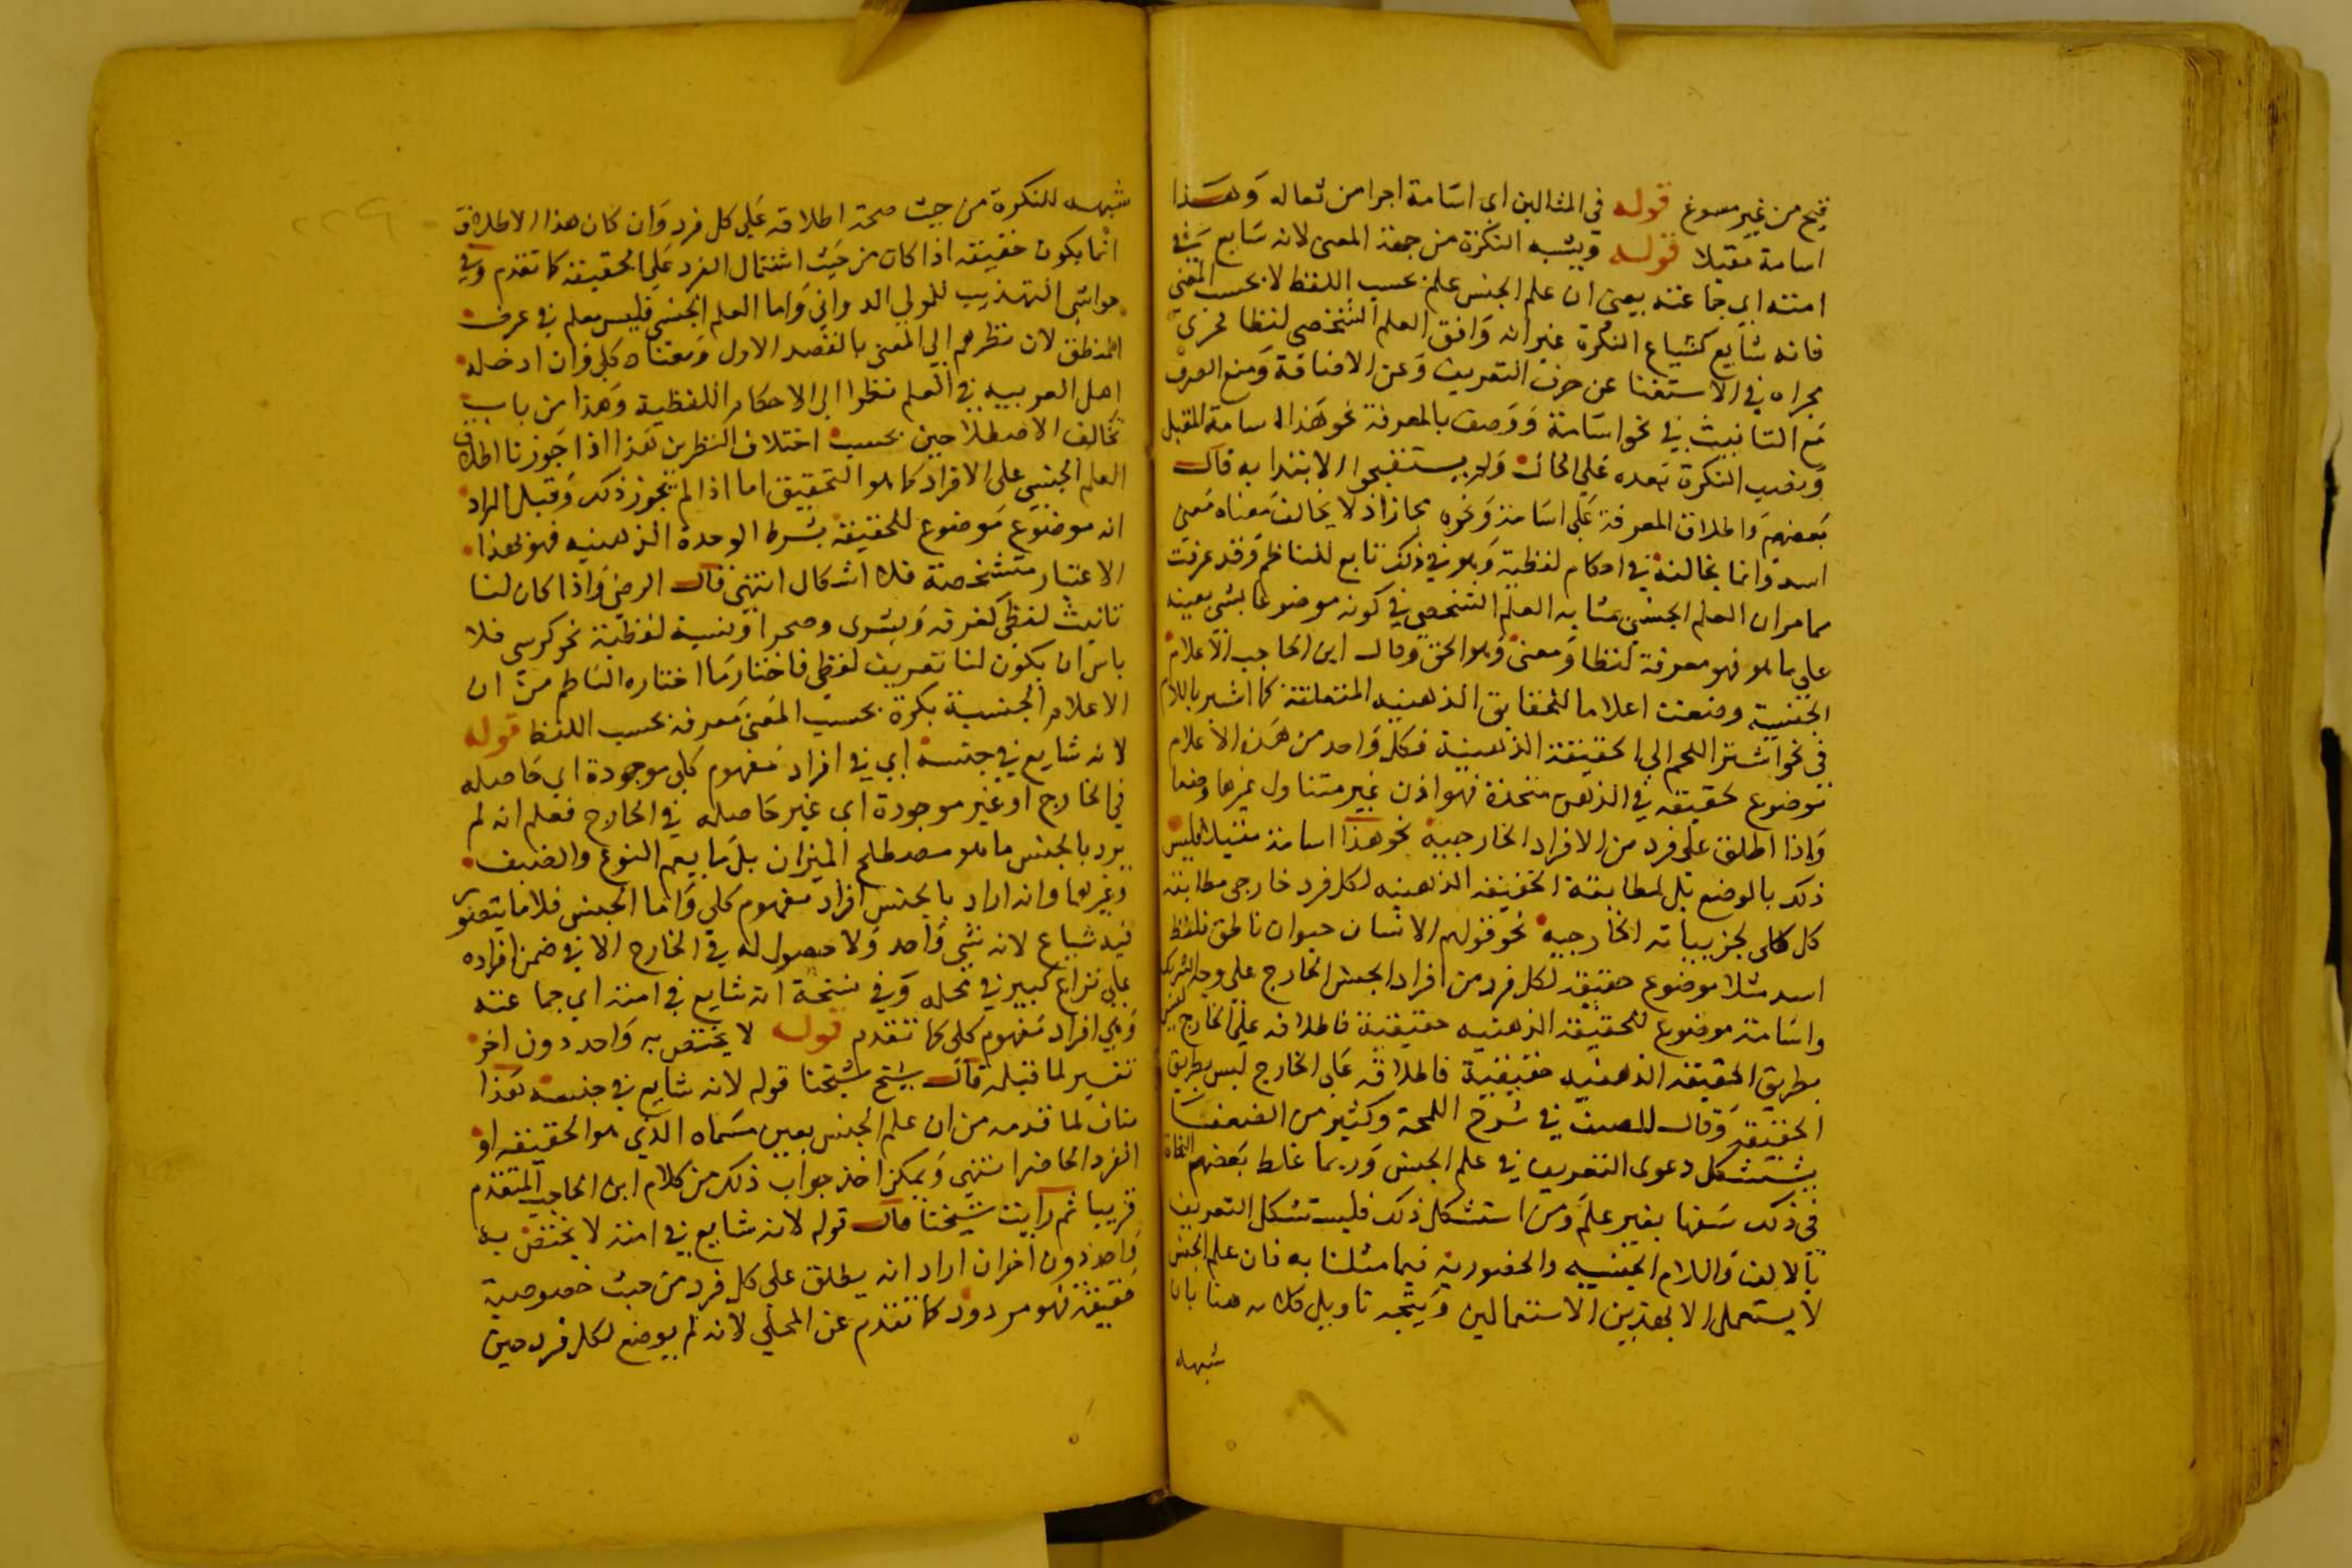 قبيح من غير مسوغ قوله في المثالين اى اسامة اجرا من ثعاله وهذا
اسامة مقبلا قوله ويشبه النكرة من جهة المعنى لانه شايع في
امته اي جماعته يعنى ان علم الجنس علم بحسب اللفظ لا بحسب المعنى
فانه شايع كشياع النكرة غير انه وافق العلم الشخصي لفظا فجرى
مجراه في الاستغنا عن حرف التعريف وعن الاضافة ومنع الصرف
مع التانيث في نحو اسامة ووصف بالمعرفة نحو هذا اسامة المقبل
ونصب النكرة بعده على الحال ولم يستقبحوا الابتدا به قال
بعضهم واطلاق المعرفة على اسامة ونحوه مجاز اذ لا يخالف معناه معنى
اسد وانما يخالفه في احكام لفظية وهو في ذلك تابع للناظم وقد عرفت
مما مر ان العلم الجنسي مشابه العلم الشخصي في كونه موضوعا بشي بعينه
على ما هو فهو معرفة لفظا ومعنى وهو الحق وقال ابن الحاجب الاعلام
الجنسية وضعت اعلاما للحقايق الذهنيه المتعلقة كما اشير باللام
في نحو اشتر اللحم الى الحقيقة الذهنية فكل واحد من هذه الاعلام
موضوع لحقيقة في الذهن متحدة فهو اذن غير متناول غيرها وضعا
واذا اطلق على فرد من الافراد الخارجية نحو هذا اسامة مقبلا فليس
ذلك بالوضع بل لمطابقة الحقيقة الذهنيه لكل فرد خارجي مطابقة
كل كلى لجزيياته الخارجية نحو قولهم الانسان حيوان ناطق فلفظ
اسد مثلا موضوع حقيقة لكل فرد من افراد الجنس الخارج على وجه التشريك
واسامة موضوع للحقيقة الذهنيه حقيقية فاطلاقه على الخارج ليس
بطريق الحقيقة الذهنيه حقيقية فاطلاقه على الخارج ليس بطريق
الحقيقة وقال المصنف في شرح اللمحة وكثير من الضعفا
يستشكل دعوى التعريف في علم الجنس وربما غلط بعضهم النحاة
في ذلك سفها بغير علم ومن استشكل ذلك فليستشكل التعريف
بالالف واللام الجنسيه والحضورية فيما مثلنا به فان علم الجنس
لا يستعمل الا بهذين الاستعمالين ويتجه تاويل كلامه هنا بان
شبهه
شبهه للنكرة من حيث صحة اطلاقه على كل فرد وان كان هذا الاطلاق
انما يكون حقيقه اذا كان من حيث اشتمال الفرد على الحقيقة كما تقدم وفي
حواشى التهذيب للمولى الدواني واما العلم الجنسي فليس بعلم في عرف
المنطق لان نظرهم الي المعنى بالقصد الاول ومعناه كلي وان ادخله
اهل العربيه في العلم نظرا الى الاحكام اللفظية وهذا من باب
تخالف الاصطلاحين بحسب اختلاف النظرين هذا اذا جوزنا اطلاق
العلم الجنسي على الافراد كما هو التحقيق اما اذا لم نجوز ذلك وقيل المراد
انه موضوع موضوع للحقيقة بشرط الوحدة الذهنيه فهو بهذا
الاعتبار متشخصة فلا اشكال انتهى قال الرضي واذا كان لنا
تانيث لفظي كغرفه وبشرى وصحرا ونسبة لفظية نحو كرسي فلا
باس ان يكون لنا تعريف لفظي فاختار ما اختاره الناظم من ان
الاعلام الجنسية نكرة بحسب المعنى معرفة بحسب اللفظ قوله
لانه شايع في جنسه اي في افراد مفهوم كلي موجودة اي حاصله
في الخارج او غير موجودة اى غير حاصله في الخارج فعلم انه لم
يرد بالجنس ما هو مصطلح الميزان بل ما يعم النوع والصنف
وغيرهما وانه اراد بالجنس افراد مفهوم كلي واما الجنس فلا ما يتصور
فيه شياع لانه شي واحد ولا حصول له في الخارج الا في ضمن افراده
على نزاع كبير في محله وفي نسخة انه شايع في امته اي جماعته
وهي افراد مفهوم كلى كما تقدم قوله لا يختص به واحد دون اخر
تفسير لما قبله قال شيخ شيخنا قوله لانه شايع في جنسه هذا
مناف لما قدمه من ان علم الجنس يعين مسماه الذي هو الحقيقه او
الفرد الحاضر انتهى ويمكن اخذ جواب ذلك من كلام ابن الحاجب المتقدم
قريبا ثم رايت شيخنا قال قوله لانه شايع في امته لا يختص به
واحد دون اخر ان اراد انه يطلق على كل فرد من حيث خصوصية
حقيقة فهو مردود كما تقدم عن المحلي لانه لم يوضع لكل فرد حين